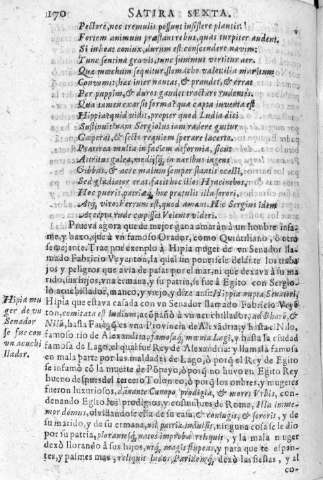 170 SATIRA SEXTA.
Pectore, nec tremulis possunt insistere plantis:
Fortem animum præstant rebus, quas turpiter audent.
Si iubeat coniux, durum est conscendere navim;
Tunc sentina gravis, tunc summus vertitur aer.
Quæ mæchum sequitur, stomacho valet: illa maritum
Convomit: hæc inter nautas, & prandet, & errat
Per puppim, & duros gaudet tractare rudentes.
Qua tamen exarsit forma? qua capta iuventa est
Hippia? quid vidit, propter quod Ludia dici
Sustinuit? nam Sergiolus iam radere guttur
Cæperat, & secto requiem sperare lacerto.
Præterea multa in facie deformia, sicut
Attritus galea, medijsq, in naribus ingens
Gibbus, & acre malum semper stillantis ocelli.
Sed gladiator erat. facit hoc illos Hyacinthos:
Hoc pueris, patriæq, hoc prætulit illa sorori,
Atq, viro: ferrum est, quod amant. Hic Sergius idem
Accepta rude cœpisset Veiento videri.
Prueva agora que de mejor gana amarà à un hombre infame,
y baxo, que à vn famoso Orador, como Quintiliano, ò otro
Trae por exemplo à Hipia muger de vn Senador llamado
Fabricio Veyanton, la qual
jos y peligros que avia de passar por el mar, ni que dexava à su marido,
sus hijos, vna hermana, y su patria, se fue à Egito con Sergiolo
acuchillador, manco, y viejo, y dize assi: Hippia nupta Senatori,
Hipia que estava casada con vn Senador llamado Fabricio Veyenton,
comitata est ludium, acōpañò à vn acuchillador, ad Pharō, &
Nilū, hasta Faro, q es vna Provincia de Alexādria, y hasta el Nilo,
famoso rio de Alexandria, famosaq, mœnia Lagi, y hasta la ciudad
famosa de Lago, el qual fue Rey de Alexandria: y llamala famosa
en mala parte por las maldades de Lago, ò porq̃ el Rey de Egito
se infamò cō la muerte de Pōpeyo, ò porq̃ no huvo en Egito Rey
bueno despues del tercero Tolomeo, ò porq̃ los ombres, y mugeres
fueron luxuriosos,
denando Egito los prodigios, y costumbres de Roma, Illa immemor
domus, olvidandose ella de su casa, & coniugis, & sororis, y de
su marido, y de su ermana, nil patriæ indulsit, ninguna cosa se le dio
por su patria, plorantesq, natos improba reliquit, y la mala muger
dexò llorando à sus hijos, vtq, magis stupeas, y para que te espantes,
y pasmes mas, reliquit ludos, Paridemq, dexò las fiestas, y al
co-
Hipia muger
de vn
Senador
se fue con
vn acuchillador.